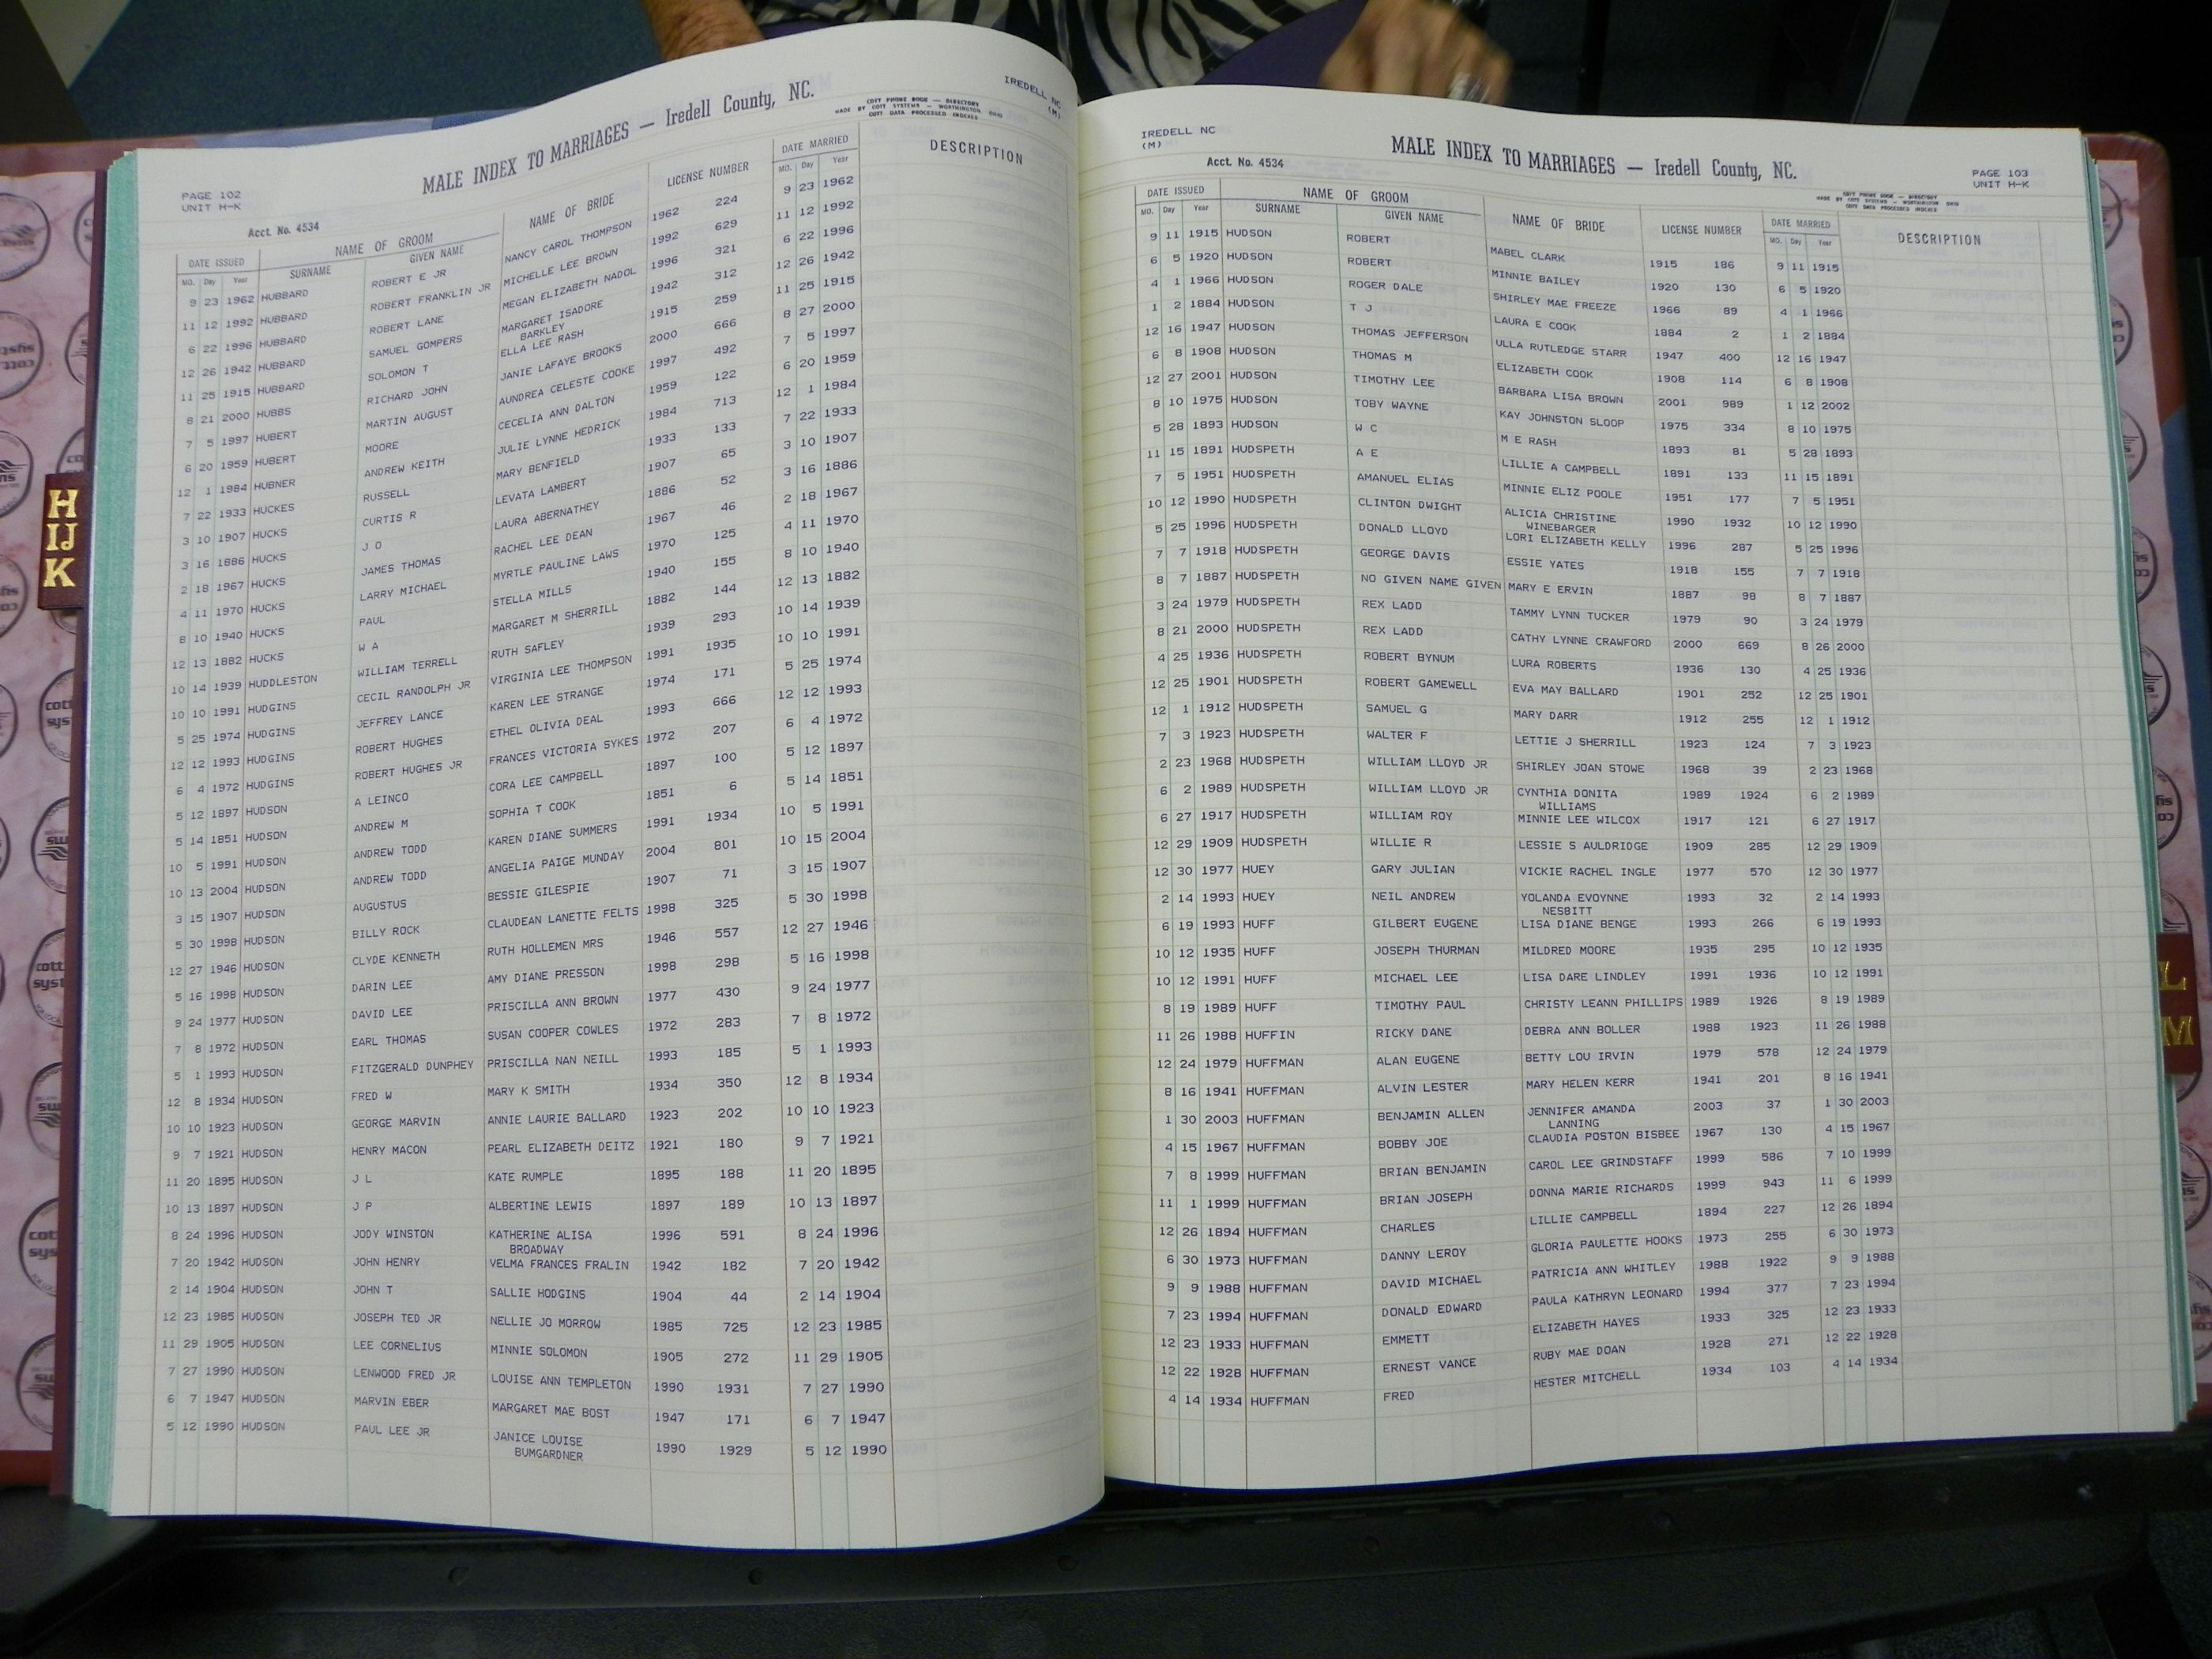 PAGE 102
UNIT H-K
MALE INDEX TO MARRIAGES — Iredell County, NC.
COTT PHONE BOOK — DIRECTORY
MADE BY COTT SYSTEMS — WORTHINGTON, OHIO
COTT DATA PROCESSED INDEXES
IREDELL NC
(M)
Acct. No. 4534
DATE ISSUED NAME OF GROOM NAME OF BRIDE LICENSE NUMBER DATE MARRIED DESCRIPTION
MO. Day Year SURNAME GIVEN NAME MO. Day Year
9 23 1962 HUBBARD ROBERT E JR NANCY CAROL THOMPSON 1962 224 9 23 1962
11 12 1992 HUBBARD ROBERT FRANKLIN JR MICHELLE LEE BROWN 1992 629 11 12 1992
6 22 1996 HUBBARD ROBERT LANE MEGAN ELIZABETH NADOL 1996 321 6 22 1996
12 26 1942 HUBBARD SAMUEL GOMPERS MARGARET ISADORE 1942 312 12 26 1942
BARKLEY
11 25 1915 HUBBARD SOLOMON T ELLA LEE RASH 1915 259 11 25 1915
8 21 2000 HUBBS RICHARD JOHN JANIE LAFAYE BROOKS 2000 666 8 27 2000
7 5 1997 HUBERT MARTIN AUGUST AUNDREA CELESTE COOKE 1997 492 7 5 1997
6 20 1959 HUBERT MOORE CECELIA ANN DALTON 1959 122 6 20 1959
12 1 1984 HUBNER ANDREW KEITH JULIE LYNNE HEDRICK 1984 713 12 1 1984
7 22 1933 HUCKES RUSSELL MARY BENFIELD 1933 133 7 22 1933
3 10 1907 HUCKS CURTIS R LEVATA LAMBERT 1907 65 3 10 1907
3 16 1886 HUCKS J O LAURA ABERNATHEY 1886 52 3 16 1886
2 18 1967 HUCKS JAMES THOMAS RACHEL LEE DEAN 1967 46 2 18 1967
4 11 1970 HUCKS LARRY MICHAEL MYRTLE PAULINE LAWS 1970 125 4 11 1970
8 10 1940 HUCKS PAUL STELLA MILLS 1940 155 8 10 1940
12 13 1882 HUCKS W A MARGARET M SHERRILL 1882 144 12 13 1882
10 14 1939 HUDDLESTON WILLIAM TERRELL RUTH SAFLEY 1939 293 10 14 1939
10 10 1991 HUDGINS CECIL RANDOLPH JR VIRGINIA LEE THOMPSON 1991 1935 10 10 1991
5 25 1974 HUDGINS JEFFREY LANCE KAREN LEE STRANGE 1974 171 5 25 1974
12 12 1993 HUDGINS ROBERT HUGHES ETHEL OLIVIA DEAL 1993 666 12 12 1993
6 4 1972 HUDGINS ROBERT HUGHES JR FRANCES VICTORIA SYKES 1972 207 6 4 1972
5 12 1897 HUDSON A LEINCO CORA LEE CAMPBELL 1897 100 5 12 1897
5 14 1851 HUDSON ANDREW M SOPHIA T COOK 1851 6 5 14 1851
10 5 1991 HUDSON ANDREW TODD KAREN DIANE SUMMERS 1991 1934 10 5 1991
10 13 2004 HUDSON ANDREW TODD ANGELIA PAIGE MUNDAY 2004 801 10 15 2004
3 15 1907 HUDSON AUGUSTUS BESSIE GILESPIE 1907 71 3 15 1907
5 30 1998 HUDSON BILLY ROCK CLAUDEAN LANETTE FELTS 1998 325 5 30 1998
12 27 1946 HUDSON CLYDE KENNETH RUTH HOLLEMEN MRS 1946 557 12 27 1946
5 16 1998 HUDSON DARIN LEE AMY DIANE PRESSON 1998 298 5 16 1998
9 24 1977 HUDSON DAVID LEE PRISCILLA ANN BROWN 1977 430 9 24 1977
7 8 1972 HUDSON EARL THOMAS SUSAN COOPER COWLES 1972 283 7 8 1972
5 1 1993 HUDSON FITZGERALD DUNPHEY PRISCILLA NAN NEILL 1993 185 5 1 1993
12 8 1934 HUDSON FRED W MARY K SMITH 1934 350 12 8 1934
10 10 1923 HUDSON GEORGE MARVIN ANNIE LAURIE BALLARD 1923 202 10 10 1923
9 7 1921 HUDSON HENRY MACON PEARL ELIZABETH DEITZ 1921 180 9 7 1921
11 20 1895 HUDSON J L KATE RUMPLE 1895 188 11 20 1895
10 13 1897 HUDSON J P ALBERTINE LEWIS 1897 189 10 13 1897
8 24 1996 HUDSON JODY WINSTON KATHERINE ALISA 1996 591 8 24 1996
BROADWAY
7 20 1942 HUDSON JOHN HENRY VELMA FRANCES FRALIN 1942 182 7 20 1942
2 14 1904 HUDSON JOHN T SALLIE HODGINS 1904 44 2 14 1904
12 23 1985 HUDSON JOSEPH TED JR NELLIE JO MORROW 1985 725 12 23 1985
11 29 1905 HUDSON LEE CORNELIUS MINNIE SOLOMON 1905 272 11 29 1905
7 27 1990 HUDSON LENWOOD FRED JR LOUISE ANN TEMPLETON 1990 1931 7 27 1990
6 7 1947 HUDSON MARVIN EBER MARGARET MAE BOST 1947 171 6 7 1947
5 12 1990 HUDSON PAUL LEE JR JANICE LOUISE 1990 1929 5 12 1990
BUMGARDNER
IREDELL NC
(M)
Acct. No. 4534
MALE INDEX TO MARRIAGES — Iredell County, NC.
PAGE 103
UNIT H-K
COTT PHONE BOOK — DIRECTORY
MADE BY COTT SYSTEMS — WORTHINGTON OHIO
COTT DATA PROCESSED INDEXES
DATE ISSUED NAME OF GROOM NAME OF BRIDE LICENSE NUMBER DATE MARRIED DESCRIPTION
MO. Day Year SURNAME GIVEN NAME MO. Day Year
9 11 1915 HUDSON ROBERT MABEL CLARK 1915 186 9 11 1915
6 5 1920 HUDSON ROBERT MINNIE BAILEY 1920 130 6 5 1920
4 1 1966 HUDSON ROGER DALE SHIRLEY MAE FREEZE 1966 89 4 1 1966
1 2 1884 HUDSON T J LAURA E COOK 1884 2 1 2 1884
12 16 1947 HUDSON THOMAS JEFFERSON ULLA RUTLEDGE STARR 1947 400 12 16 1947
6 8 1908 HUDSON THOMAS M ELIZABETH COOK 1908 114 6 8 1908
12 27 2001 HUDSON TIMOTHY LEE BARBARA LISA BROWN 2001 989 1 12 2002
8 10 1975 HUDSON TOBY WAYNE KAY JOHNSTON SLOOP 1975 334 8 10 1975
5 28 1893 HUDSON W C M E RASH 1893 81 5 28 1893
11 15 1891 HUDSPETH A E LILLIE A CAMPBELL 1891 133 11 15 1891
7 5 1951 HUDSPETH AMANUEL ELIAS MINNIE ELIZ POOLE 1951 177 7 5 1951
10 12 1990 HUDSPETH CLINTON DWIGHT ALICIA CHRISTINE 1990 1932 10 12 1990
WINEBARGER
5 25 1996 HUDSPETH DONALD LLOYD LORI ELIZABETH KELLY 1996 287 5 25 1996
7 7 1918 HUDSPETH GEORGE DAVIS ESSIE YATES 1918 155 7 7 1918
8 7 1887 HUDSPETH NO GIVEN NAME GIVEN MARY E ERVIN 1887 98 8 7 1887
3 24 1979 HUDSPETH REX LADD TAMMY LYNN TUCKER 1979 90 3 24 1979
8 21 2000 HUDSPETH REX LADD CATHY LYNNE CRAWFORD 2000 669 8 26 2000
4 25 1936 HUDSPETH ROBERT BYNUM LURA ROBERTS 1936 130 4 25 1936
12 25 1901 HUDSPETH ROBERT GAMEWELL EVA MAY BALLARD 1901 252 12 25 1901
12 1 1912 HUDSPETH SAMUEL G MARY DARR 1912 255 12 1 1912
7 3 1923 HUDSPETH WALTER F LETTIE J SHERRILL 1923 124 7 3 1923
2 23 1968 HUDSPETH WILLIAM LLOYD JR SHIRLEY JOAN STOWE 1968 39 2 23 1968
6 2 1989 HUDSPETH WILLIAM LLOYD JR CYNTHIA DONITA 1989 1924 6 2 1989
WILLIAMS
6 27 1917 HUDSPETH WILLIAM ROY MINNIE LEE WILCOX 1917 121 6 27 1917
12 29 1909 HUDSPETH WILLIE R LESSIE S AULDRIDGE 1909 285 12 29 1909
12 30 1977 HUEY GARY JULIAN VICKIE RACHEL INGLE 1977 570 12 30 1977
2 14 1993 HUEY NEIL ANDREW YOLANDA EVOYNNE 1993 32 2 14 1993
NESBITT
6 19 1993 HUFF GILBERT EUGENE LISA DIANE BENGE 1993 266 6 19 1993
10 12 1935 HUFF JOSEPH THURMAN MILDRED MOORE 1935 295 10 12 1935
10 12 1991 HUFF MICHAEL LEE LISA DARE LINDLEY 1991 1936 10 12 1991
8 19 1989 HUFF TIMOTHY PAUL CHRISTY LEANN PHILLIPS 1989 1926 8 19 1989
11 26 1988 HUFFIN RICKY DANE DEBRA ANN BOLLER 1988 1923 11 26 1988
12 24 1979 HUFFMAN ALAN EUGENE BETTY LOU IRVIN 1979 578 12 24 1979
8 16 1941 HUFFMAN ALVIN LESTER MARY HELEN KERR 1941 201 8 16 1941
1 30 2003 HUFFMAN BENJAMIN ALLEN JENNIFER AMANDA 2003 37 1 30 2003
LANNING
4 15 1967 HUFFMAN BOBBY JOE CLAUDIA POSTON BISBEE 1967 130 4 15 1967
7 8 1999 HUFFMAN BRIAN BENJAMIN CAROL LEE GRINDSTAFF 1999 586 7 10 1999
11 1 1999 HUFFMAN BRIAN JOSEPH DONNA MARIE RICHARDS 1999 943 11 6 1999
12 26 1894 HUFFMAN CHARLES LILLIE CAMPBELL 1894 227 12 26 1894
6 30 1973 HUFFMAN DANNY LEROY GLORIA PAULETTE HOOKS 1973 255 6 30 1973
9 9 1988 HUFFMAN DAVID MICHAEL PATRICIA ANN WHITLEY 1988 1922 9 9 1988
7 23 1994 HUFFMAN DONALD EDWARD PAULA KATHRYN LEONARD 1994 377 7 23 1994
12 23 1933 HUFFMAN EMMETT ELIZABETH HAYES 1933 325 12 23 1933
12 22 1928 HUFFMAN ERNEST VANCE RUBY MAE DOAN 1928 271 12 22 1928
4 14 1934 HUFFMAN FRED HESTER MITCHELL 1934 103 4 14 1934
H
IJ
K
L
M